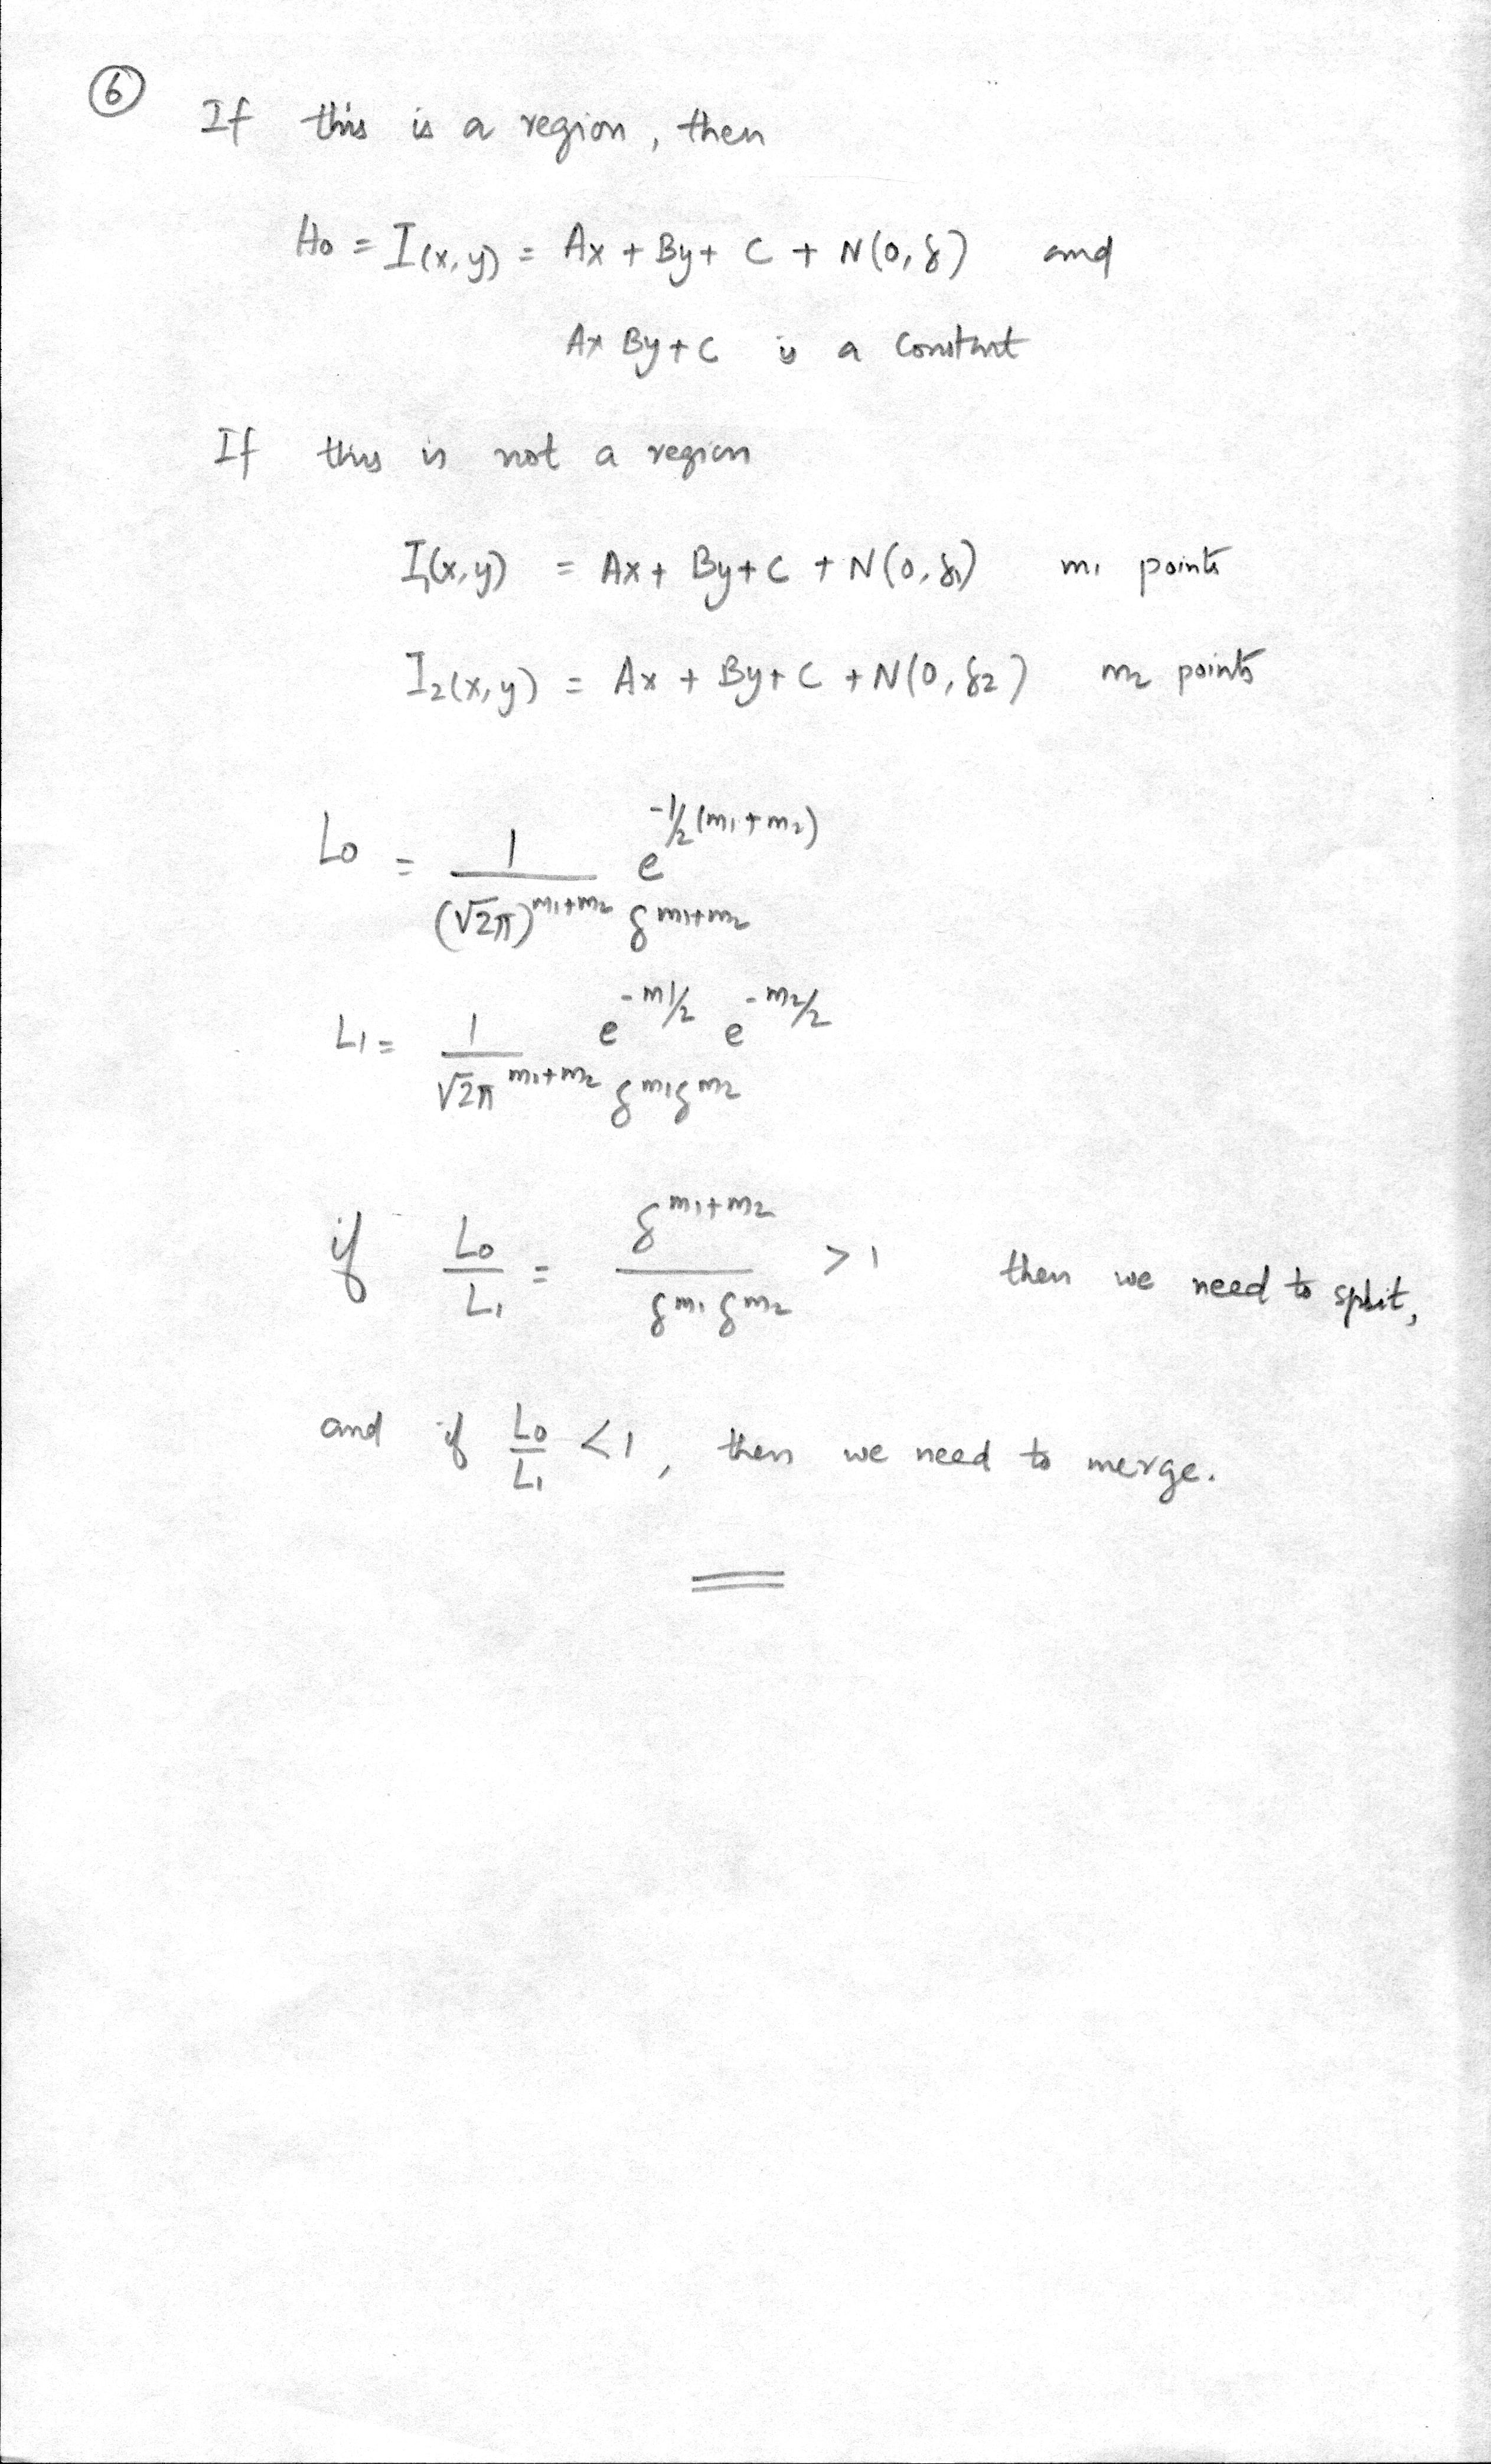 ⑥
If this is a region, then
H0 = I(x,y) = Ax + By + C + N(0, δ) and
Ax By + C is a constant
If this is not a region
I1(x,y) = Ax + By + C + N(0, δ1) m1 points
I2(x,y) = Ax + By + C + N(0, δ2) m2 points
L0 = 1 / (√2π)^m1+m2 e^-1/2(m1+m2) / δ^m1+m2
L1 = 1 / √2π^m1+m2 e^-m1/2 e^-m2/2 / δ^m1 δ^m2
if L0 / L1 = δ^m1+m2 / δ^m1 δ^m2 > 1 then we need to split,
and if L0 / L1 < 1, then we need to merge.